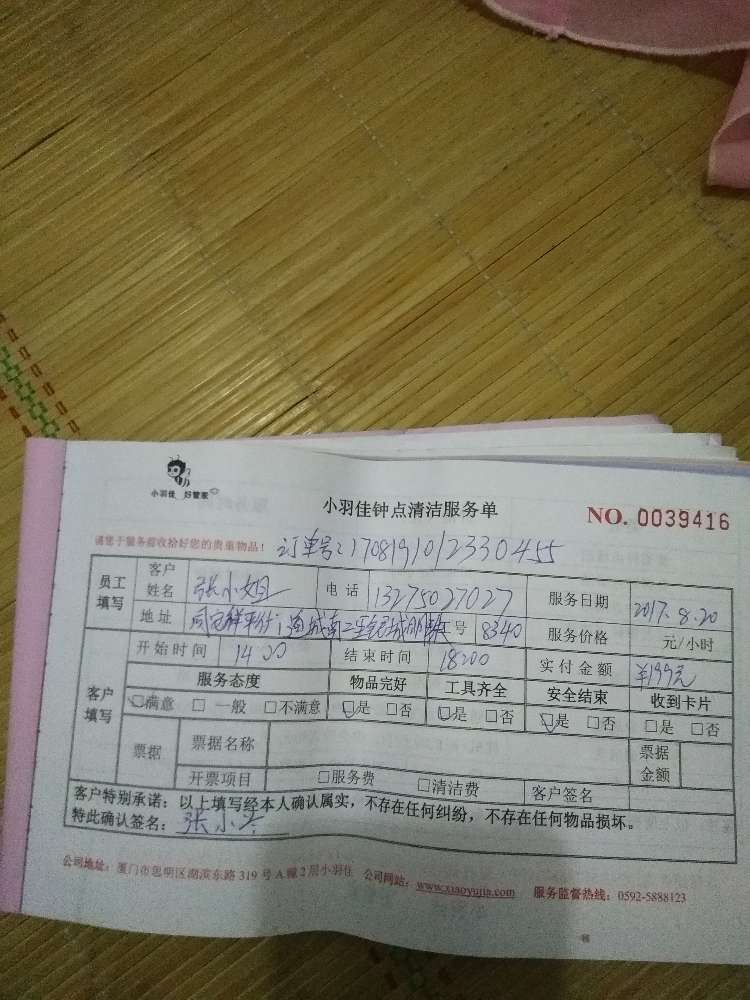 小羽佳 好管家
小羽佳钟点清洁服务单
NO. 0039416
请您于服务前收拾好您的贵重物品！ 订单号：1708191012330455
员工填写 客户姓名 张小姐 电话 13275027027 服务日期 2017.8.20
地址 号 8340 服务价格 元/小时
客户填写 开始时间 14 00 结束时间 18 00 实付金额 ¥199元
服务态度 物品完好 工具齐全 安全结束 收到卡片
☑满意 □ 一般 □不满意 ☑是 □否 ☑是 □否 ☑是 □否 □是 □否
票据 票据名称 票据金额
开票项目 □服务费 □清洁费 客户签名
客户特别承诺：以上填写经本人确认属实，不存在任何纠纷，不存在任何物品损坏。
特此确认签名：张小
公司地址：厦门市思明区湖滨东路 319 号 A 幢 2 层小羽佳 公司网站：www.xiaoyujia.com 服务监督热线：0592-5888123